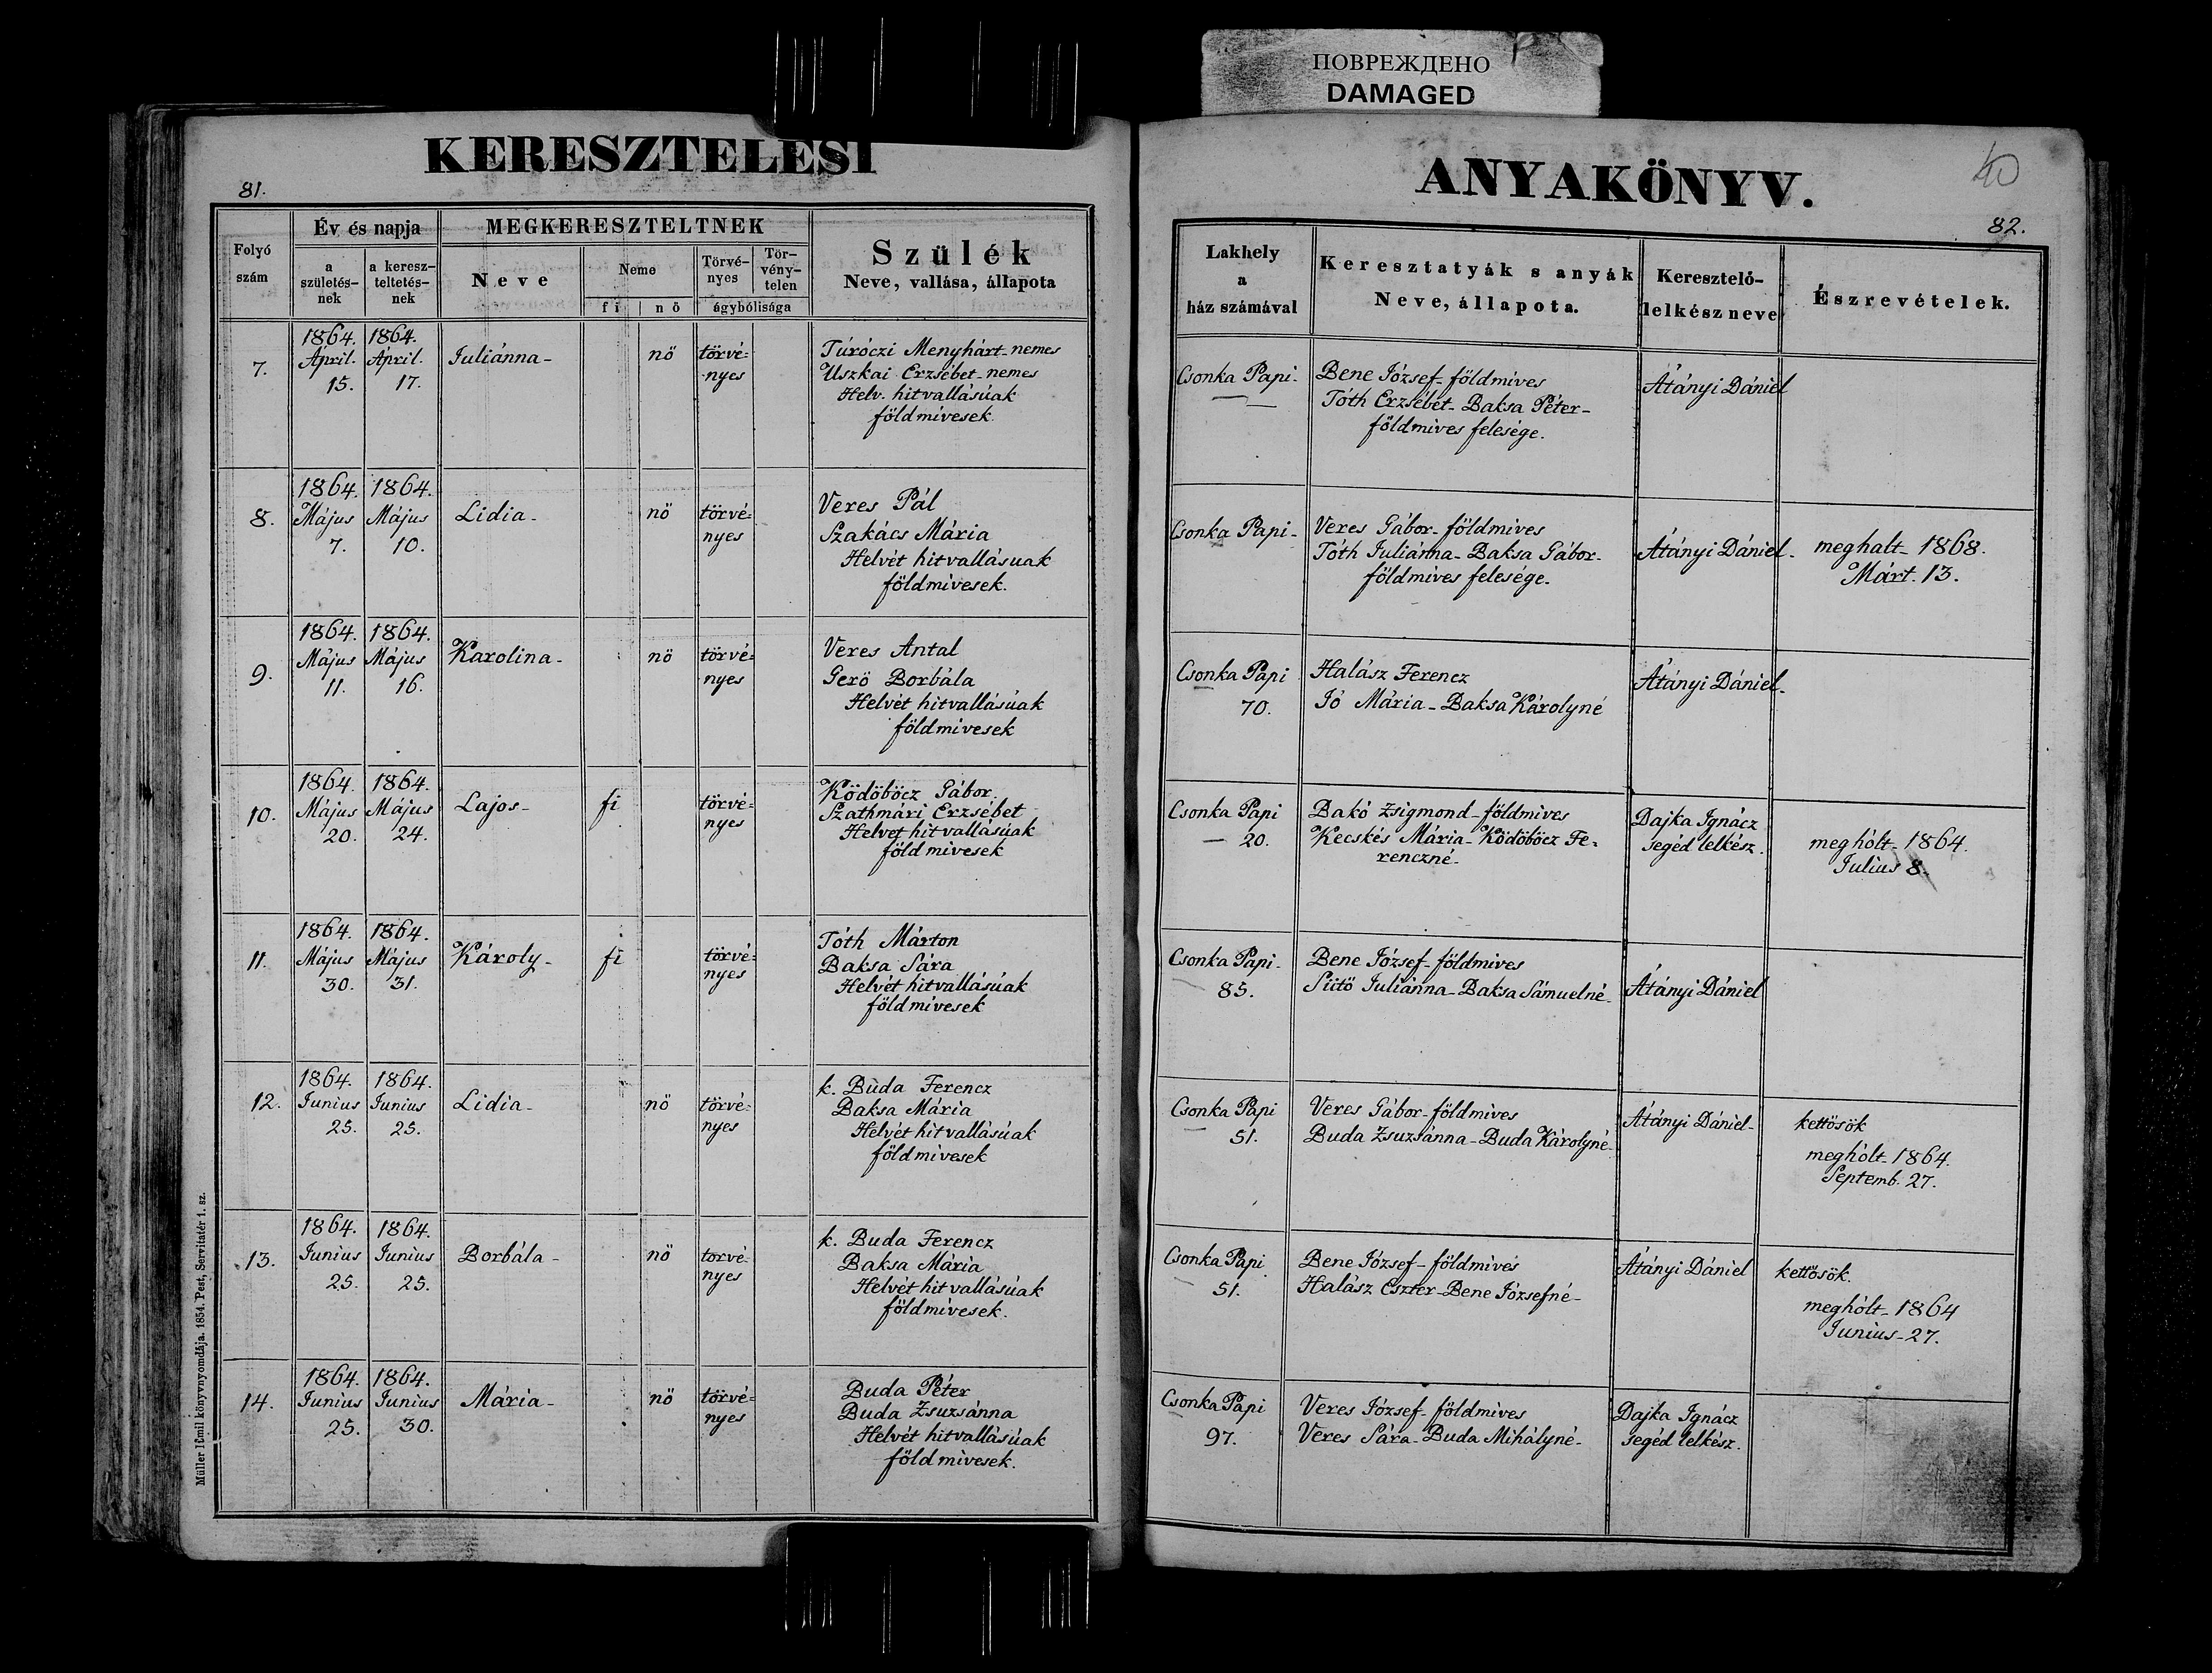 ПОВРЕЖДЕНО
DAMAGED
KERESZTELESI
81.
Folyó szám
Év és napja
a születés-nek
a keresz-teltetés-nek
MEGKERESZTELTNEK
Neve
Neme
fi
nö
Törvé-nyes
Tör-vény-telen
ágybólisága
Szülék
Neve, vallása, állapota
7.
1864. April. 15.
1864. April. 17.
Juliánna-
nö
törvé=
nyes
Túróczi Menyhárt-nemes
Uszkai Erzsébet-nemes
Helv. hitvallásúak
földmivesek.
8.
1864. Május 7.
1864. Május 10.
Lidia-
nö
törvé=
nyes
Veres Pál
Szakács Mária
Helvét hitvallásuak
földmivesek.
9.
1864. Május 11.
1864. Május 16.
Karolina-
nö
törvé=
nyes
Veres Antal
Gerö Borbála
Helvét hitvallásúak
földmivesek
10.
1864. Május 20.
1864. Május 24.
Lajos-
fi
törvé=
nyes
Ködöböcz Gábor.
Szathmári Erzsébet
Helvet hitvallásúak
földmivesek
11.
1864. Május 30.
1864. Május 31.
Károly-
fi
törvé=
nyes
Tóth Márton
Baksa Sára
Helvét hitvallásúak
földmivesek
12.
1864. Junius 25.
1864. Junius 25.
Lidia-
nö
törvé=
nyes
k. Buda Ferencz
Baksa Mária
Helvét hitvallásúak
földmivesek
13.
1864. Junius 25.
1864. Junius 25.
Borbála-
nö
törvé=
nyes
k. Buda Ferencz
Baksa Mária
Helvét hitvallásúak
földmivesek.
14.
1864. Junius 25.
1864. Junius 30.
Mária-
nö
törvé=
nyes
Buda Péter
Buda Zsuzsánna
Helvét hitvallásúak
földmivesek.
Müller Emil könyvnyomdája. 1854. Pest, Servitatér 1. sz.
ANYAKÖNYV.
40
82.
Lakhely
a
ház számával
Keresztatyák s anyák
Neve, állapota.
Keresztelő-
lelkész neve
Észrevételek.
Csonka Papi-
Bene József-földmives
Tóth Erzsébet-Baksa Péter-
földmives felesége.
Átányi Dániel
Csonka Papi-
Veres Gábor-földmives
Tóth Juliánna-Baksa Gábor-
földmives felesége.
Átányi Dániel-
meghalt-1868.
Márt. 13.
Csonka Papi
70.
Halász Ferencz
Jó Mária-Baksa Károlyné
Átányi Dániel-
Csonka Papi
20.
Bakó Zsigmond-földmives
Kecskés Mária-Ködöböcz Fe=
renczné-
Dajka Ignácz
segéd lelkész.
meghólt-1864.
Julius 8.
Csonka Papi-
85.
Bene József-földmives
Sütö Juliánna-Baksa Sámuelné-
Átányi Dániel
Csonka Papi
51.
Veres Gábor-földmives
Buda Zsuzsánna-Buda Károlyné-
Átányi Dániel-
kettösök
meghólt-1864.
Septemb. 27.
Csonka Papi
51.
Bene József-földmives
Halász Eszter-Bene Józsefné-
Átányi Dániel
kettösök.
meghólt-1864
Junius-27.
Csonka Papi
97.
Veres József-földmives
Veres Sára-Buda Mihályné-
Dajka Ignácz
segéd lelkész.